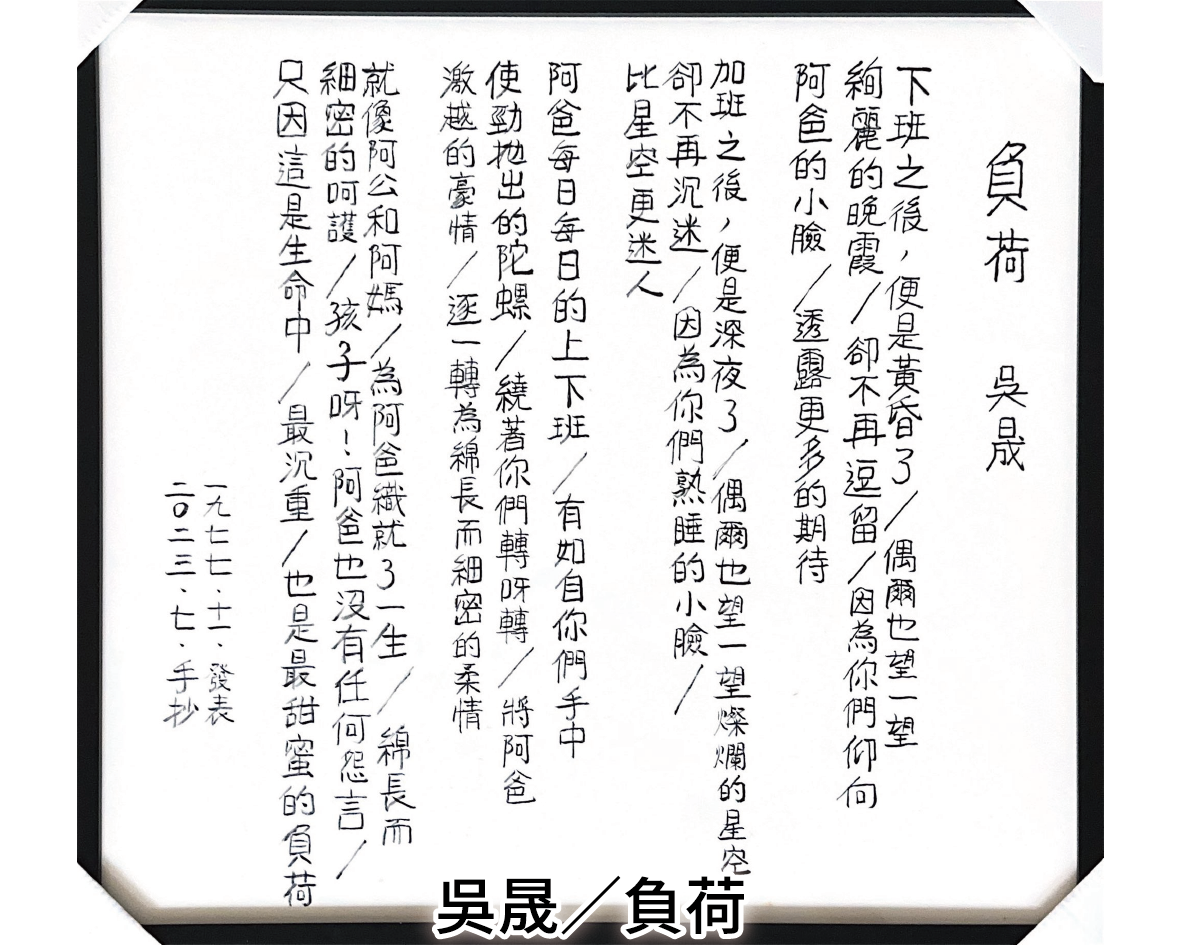 負荷　吳晟
下班之後，便是黃昏了／偶爾也望一望
絢麗的晚霞／卻不再逗留／因為你們仰向
阿爸的小臉／透露更多的期待
加班之後，便是深夜了／偶爾也望一望燦爛的星空
卻不再沉迷／因為你們熟睡的小臉／
比星空更迷人
阿爸每日每日的上下班／有如自你們手中
使勁拋出的陀螺／繞著你們轉呀轉／將阿爸
激越的豪情／逐一轉為綿長而細密的柔情
就像阿公和阿媽／為阿爸織就了一生／綿長而
細密的呵護／孩子呀！阿爸也沒有任何怨言／
只因這是生命中／最沉重／也是最甜蜜的負荷
一九七七、十一、發表
二〇二三、七、手抄
吳晟／負荷